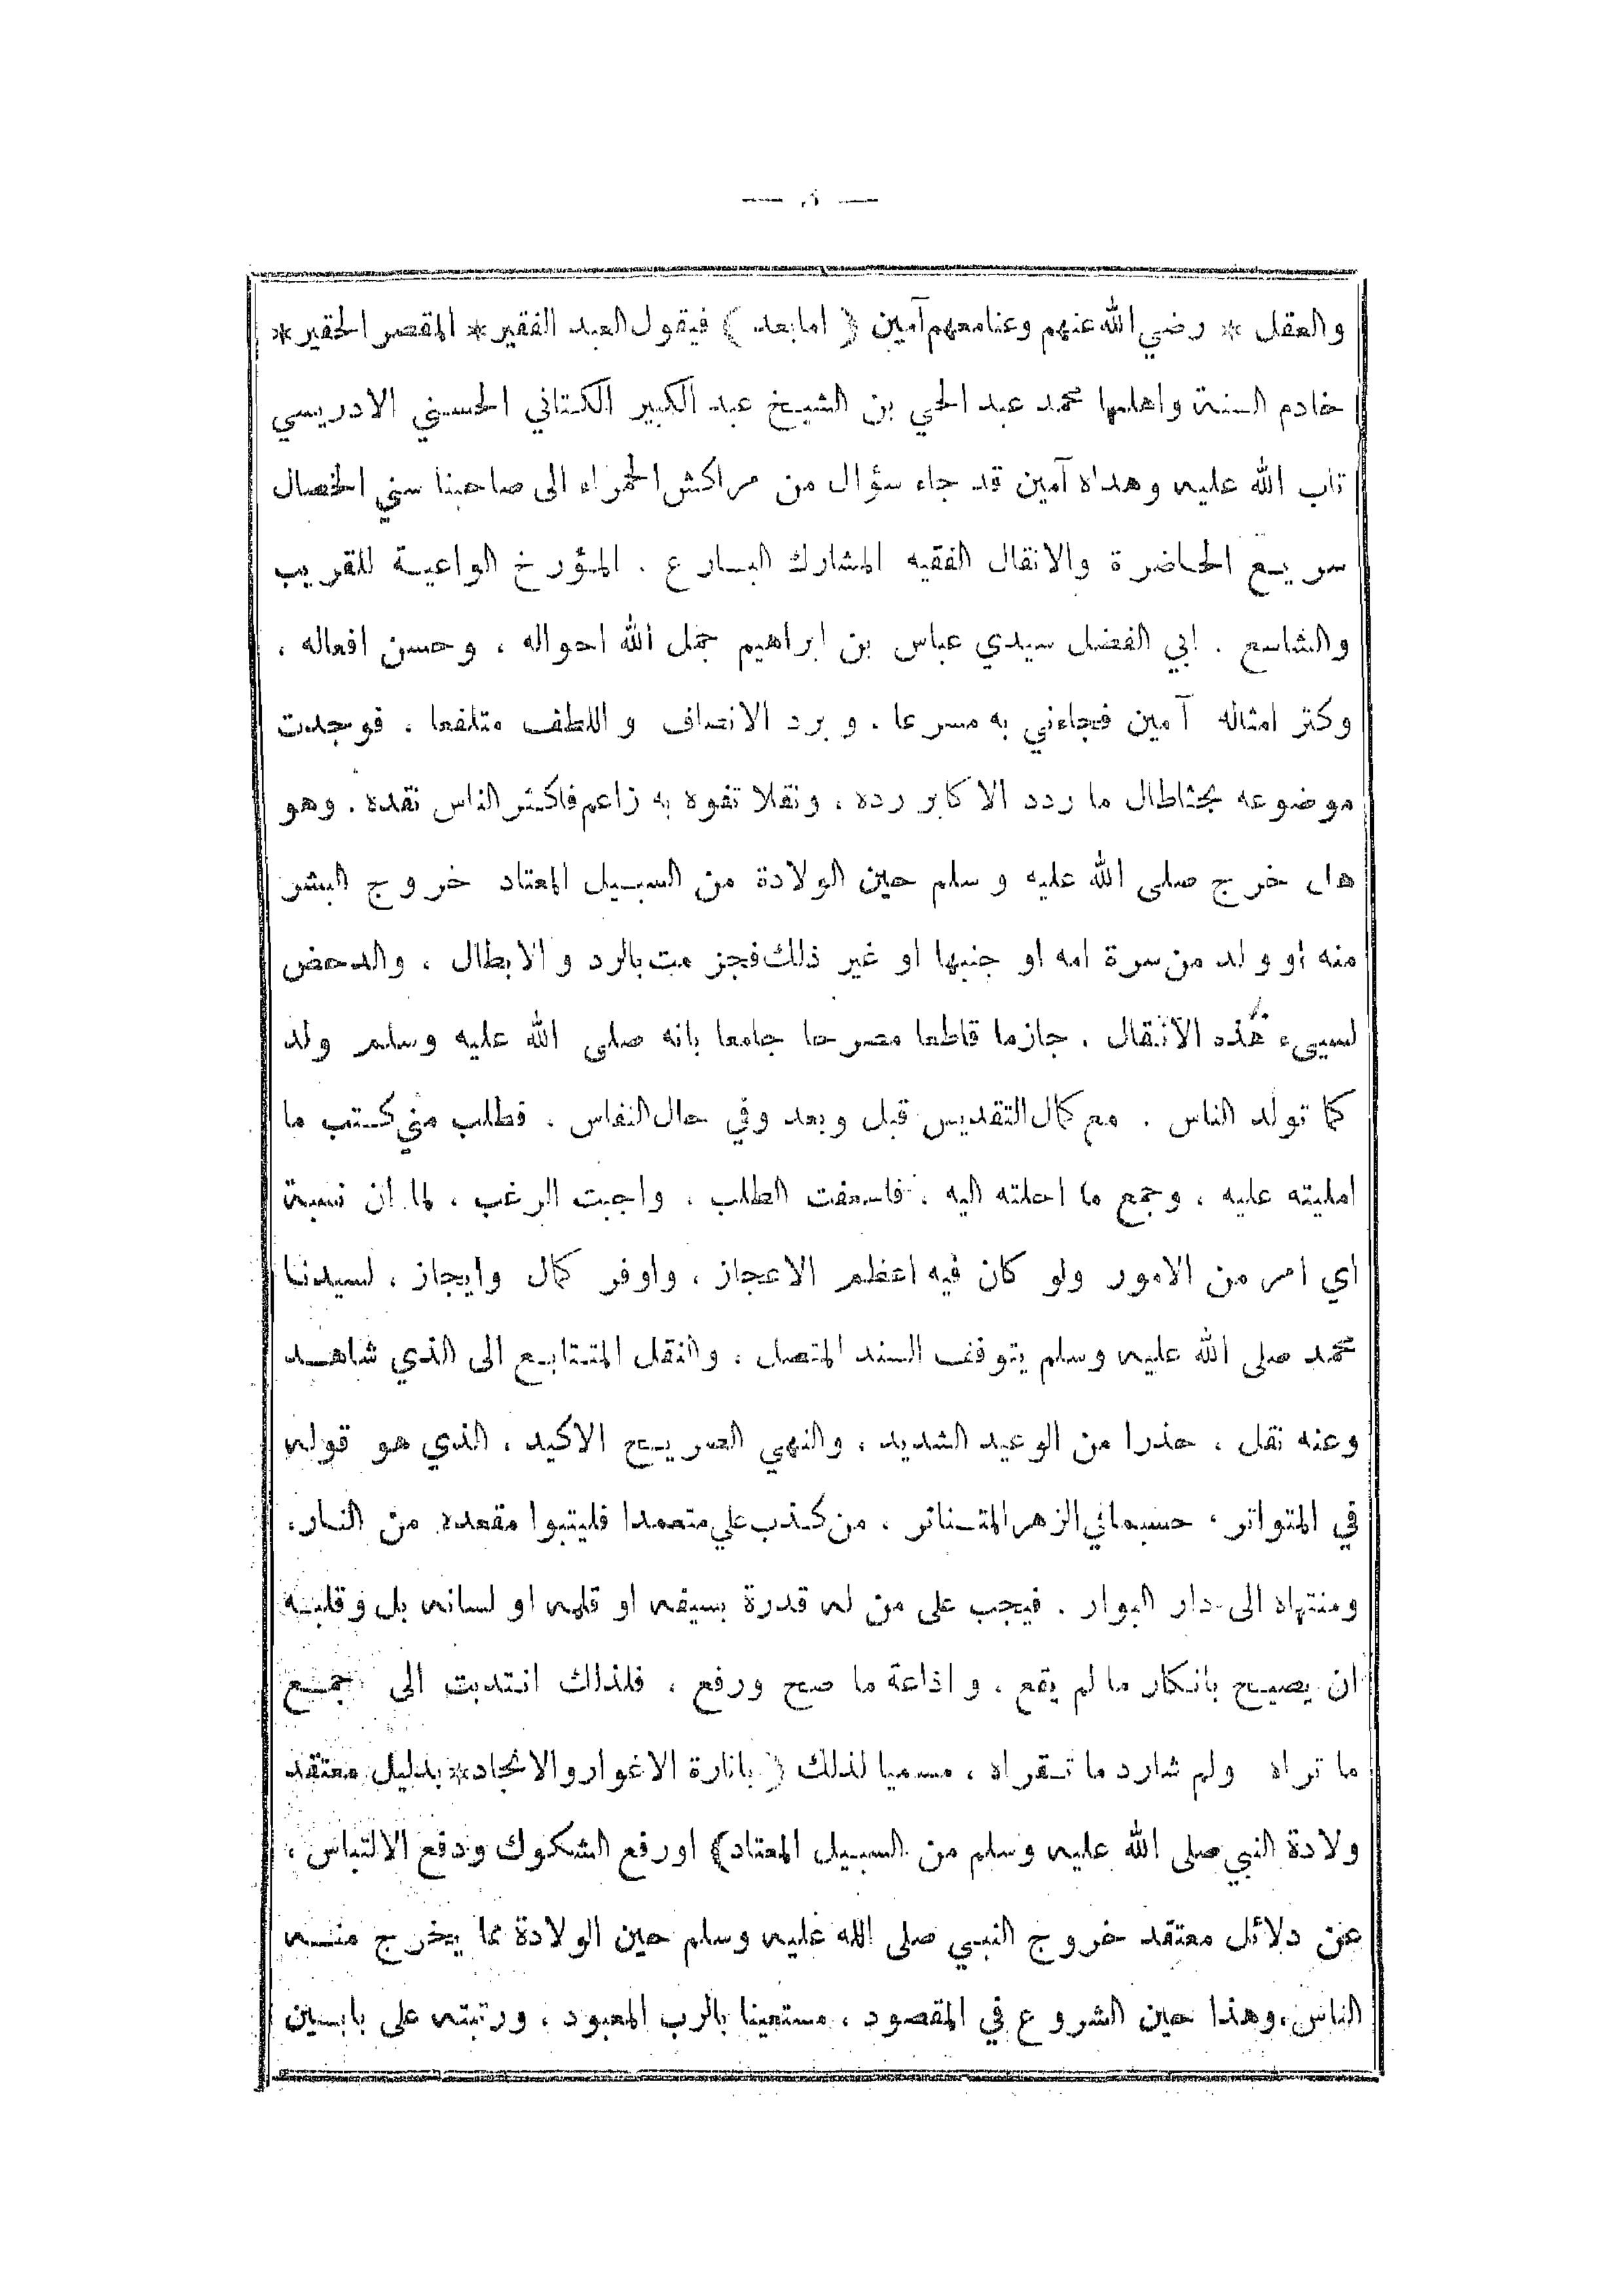 والعقل * رضي الله عنهم وعنا معهم آمين ( اما بعد ) فيقول العبد الفقير * المقصر الحقير *
خادم السنة واهلها محمد عبد الحي بن الشيخ عبد الكبير الكتاني الحسني الادريسي
تاب الله عليه وهداه آمين قد جاء سؤال من مراكش الحمراء الى صاحبنا سني الخصال
سريع الحاضرة والانقال الفقيه المشارك البارع . المؤرخ الواعية للقريب
والشاسع . ابي الفضل سيدي عباس بن ابراهيم جمل الله احواله ، وحسن افعاله ،
وكثر امثاله آمين فجاءني به مسرعا . و برد الانصاف و اللطف متلفعا . فوجدت
موضوعه بحثا طال ما ردد الاكابر رده ، ونقلا تفوه به زاعم فاكثر الناس نقده . وهو
هل خرج صلى الله عليه و سلم حين الولادة من السبيل المعتاد خروج البشر
منه او ولد من سرة امه او جنبها او غير ذلك فجزمت بالرد و الابطال . والدحض
لسيىء هذه الانقال . جازما قاطعا مصرحا جامعا بانه صلى الله عليه وسلم ولد
كما تولد الناس . مع كمال التقديس قبل وبعد وفي حال النفاس . فطلب مني كتب ما
امليته عليه ، وجمع ما احلته اليه . فاسعفت الطلب . واجبت الرغب ، لما ان نسبة
اي امر من الامور ولو كان فيه اعظم الاعجاز ، واوفر كمال وايجاز ، لسيدنا
محمد صلى الله عليه وسلم يتوقف السند المتصل ، والنقل المتتابع الى الذي شاهد
وعنه نقل ، حذرا من الوعيد الشديد ، والنهي الصريح الاكيد ، الذي هو قوله
في المتواتر ، حسبما في الزهر المتناثر ، من كذب علي متعمدا فليتبوا مقعده من النار،
ومنتهاه الى دار البوار . فيجب على من له قدرة بسيفه او قلمه او لسانه بل وقلبه
ان يصيح بانكار ما لم يقع ، و اذاعة ما صح ورفع ، فلذلك انتدبت الى جمع
ما تراه ولم شارد ما تقراه ، مسميا لذلك ( بانارة الاغوار والانجاد * بدليل معتقد
ولادة النبي صلى الله عليه وسلم من السبيل المعتاد ) او رفع الشكوك ودفع الالتباس ،
عن دلائل معتقد خروج النبي صلى الله عليه وسلم حين الولادة مما يخرج منه
الناس ، وهذا حين الشروع في المقصود ، مستعينا بالرب المعبود ، ورتبته على بابين